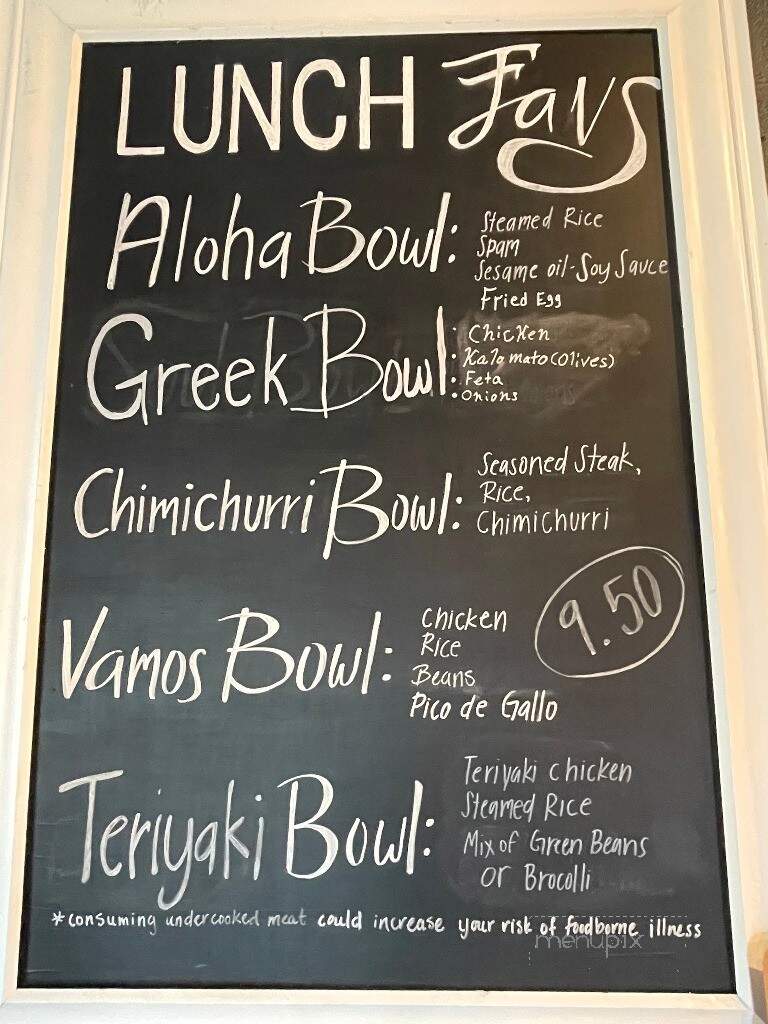 LUNCH Favs
Aloha Bowl: Steamed Rice
Spam
Sesame oil-Soy Sauce
Fried Egg
Greek Bowl:
• Chicken
• Kalamato (Olives)
• Feta
• Onions
Chimichurri Bowl: Seasoned Steak,
Rice,
Chimichurri
9.50
Vamos Bowl: Chicken
Rice
Beans
Pico de Gallo
Teriyaki Bowl: Teriyaki chicken
Steamed Rice
Mix of Green Beans
or Brocolli
*consuming undercooked meat could increase your risk of foodborne illness
menupix